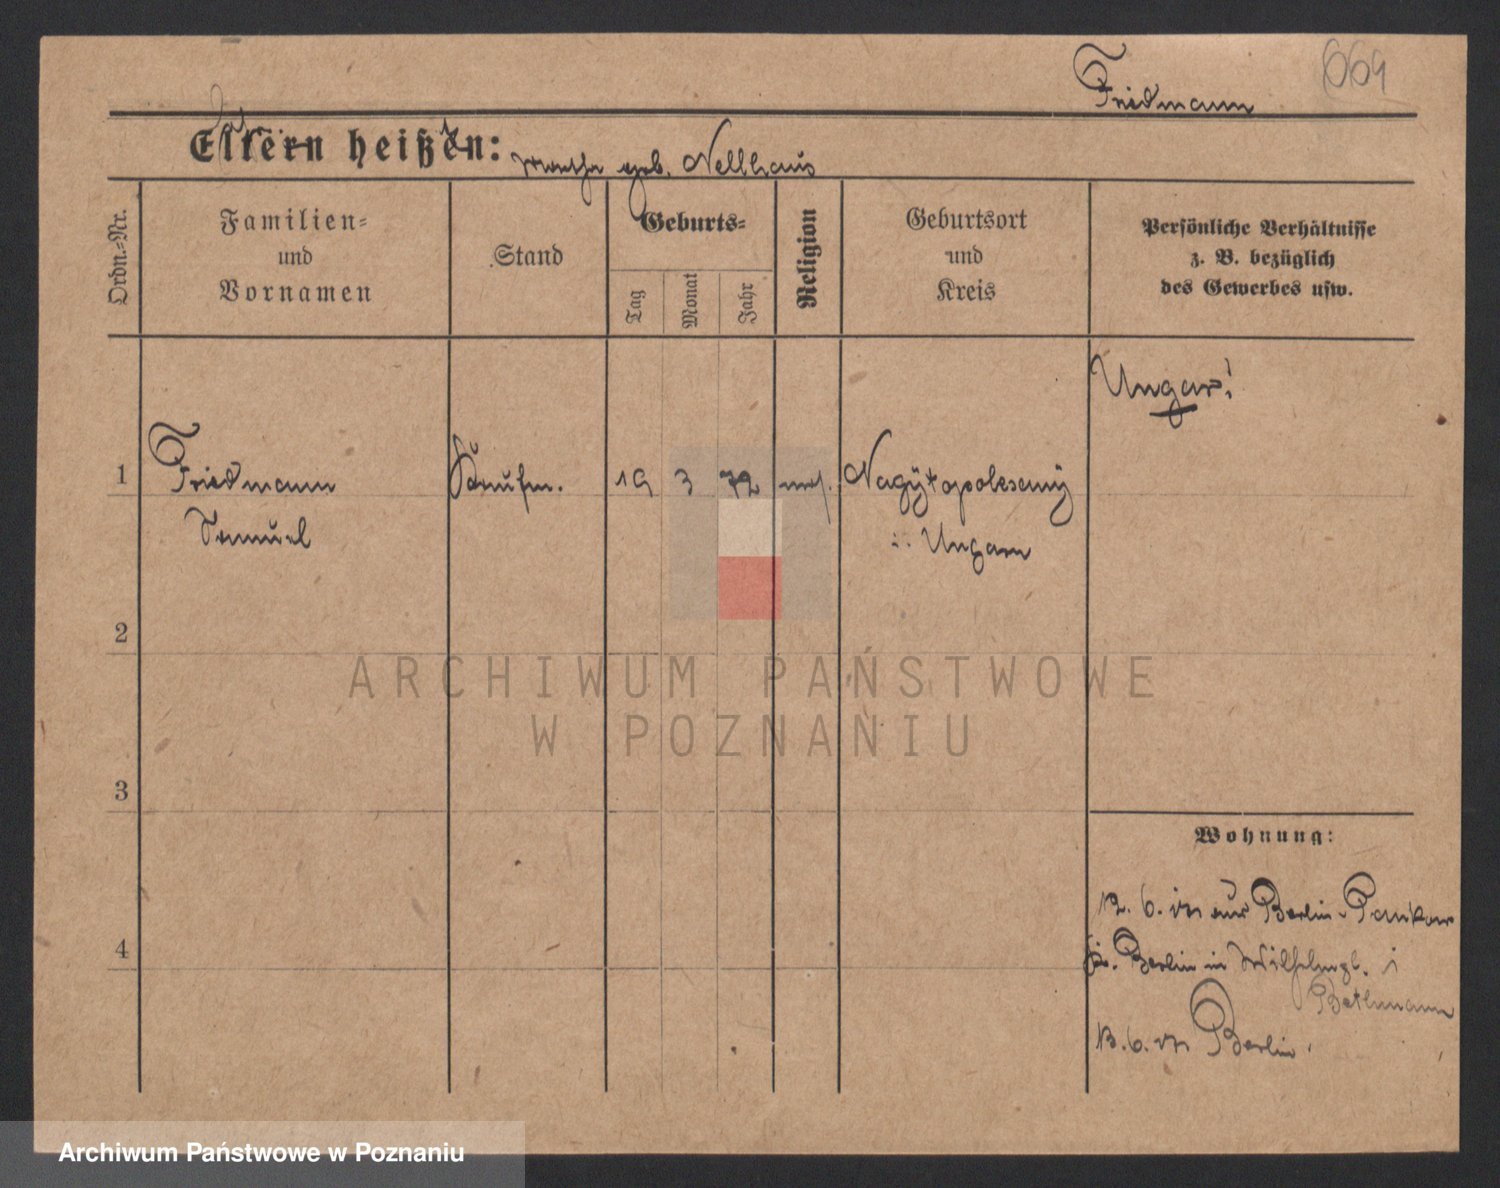 Friedmann
669
Eltern heißen:
Martha geb. Nellhaus
Ordn.-Nr.
Familien-
und
Vornamen
Stand
Geburts-
Tag
Monat
Jahr
Religion
Geburtsort
und
Kreis
Persönliche Verhältnisse
z. B. bezüglich
des Gewerbes usw.
Ungar!
1
Friedmann
Kaufm.
19
3
72
mos.
Samuel
Ungarn
2
3
4
Wohnung:
12. 6. aus Berlin-Pankow
Berlin in Wilhelmpl.
Bethmann
13. 6. Berlin
ARCHIWUM PAŃSTWOWE
W POZNANIU
Archiwum Państwowe w Poznaniu